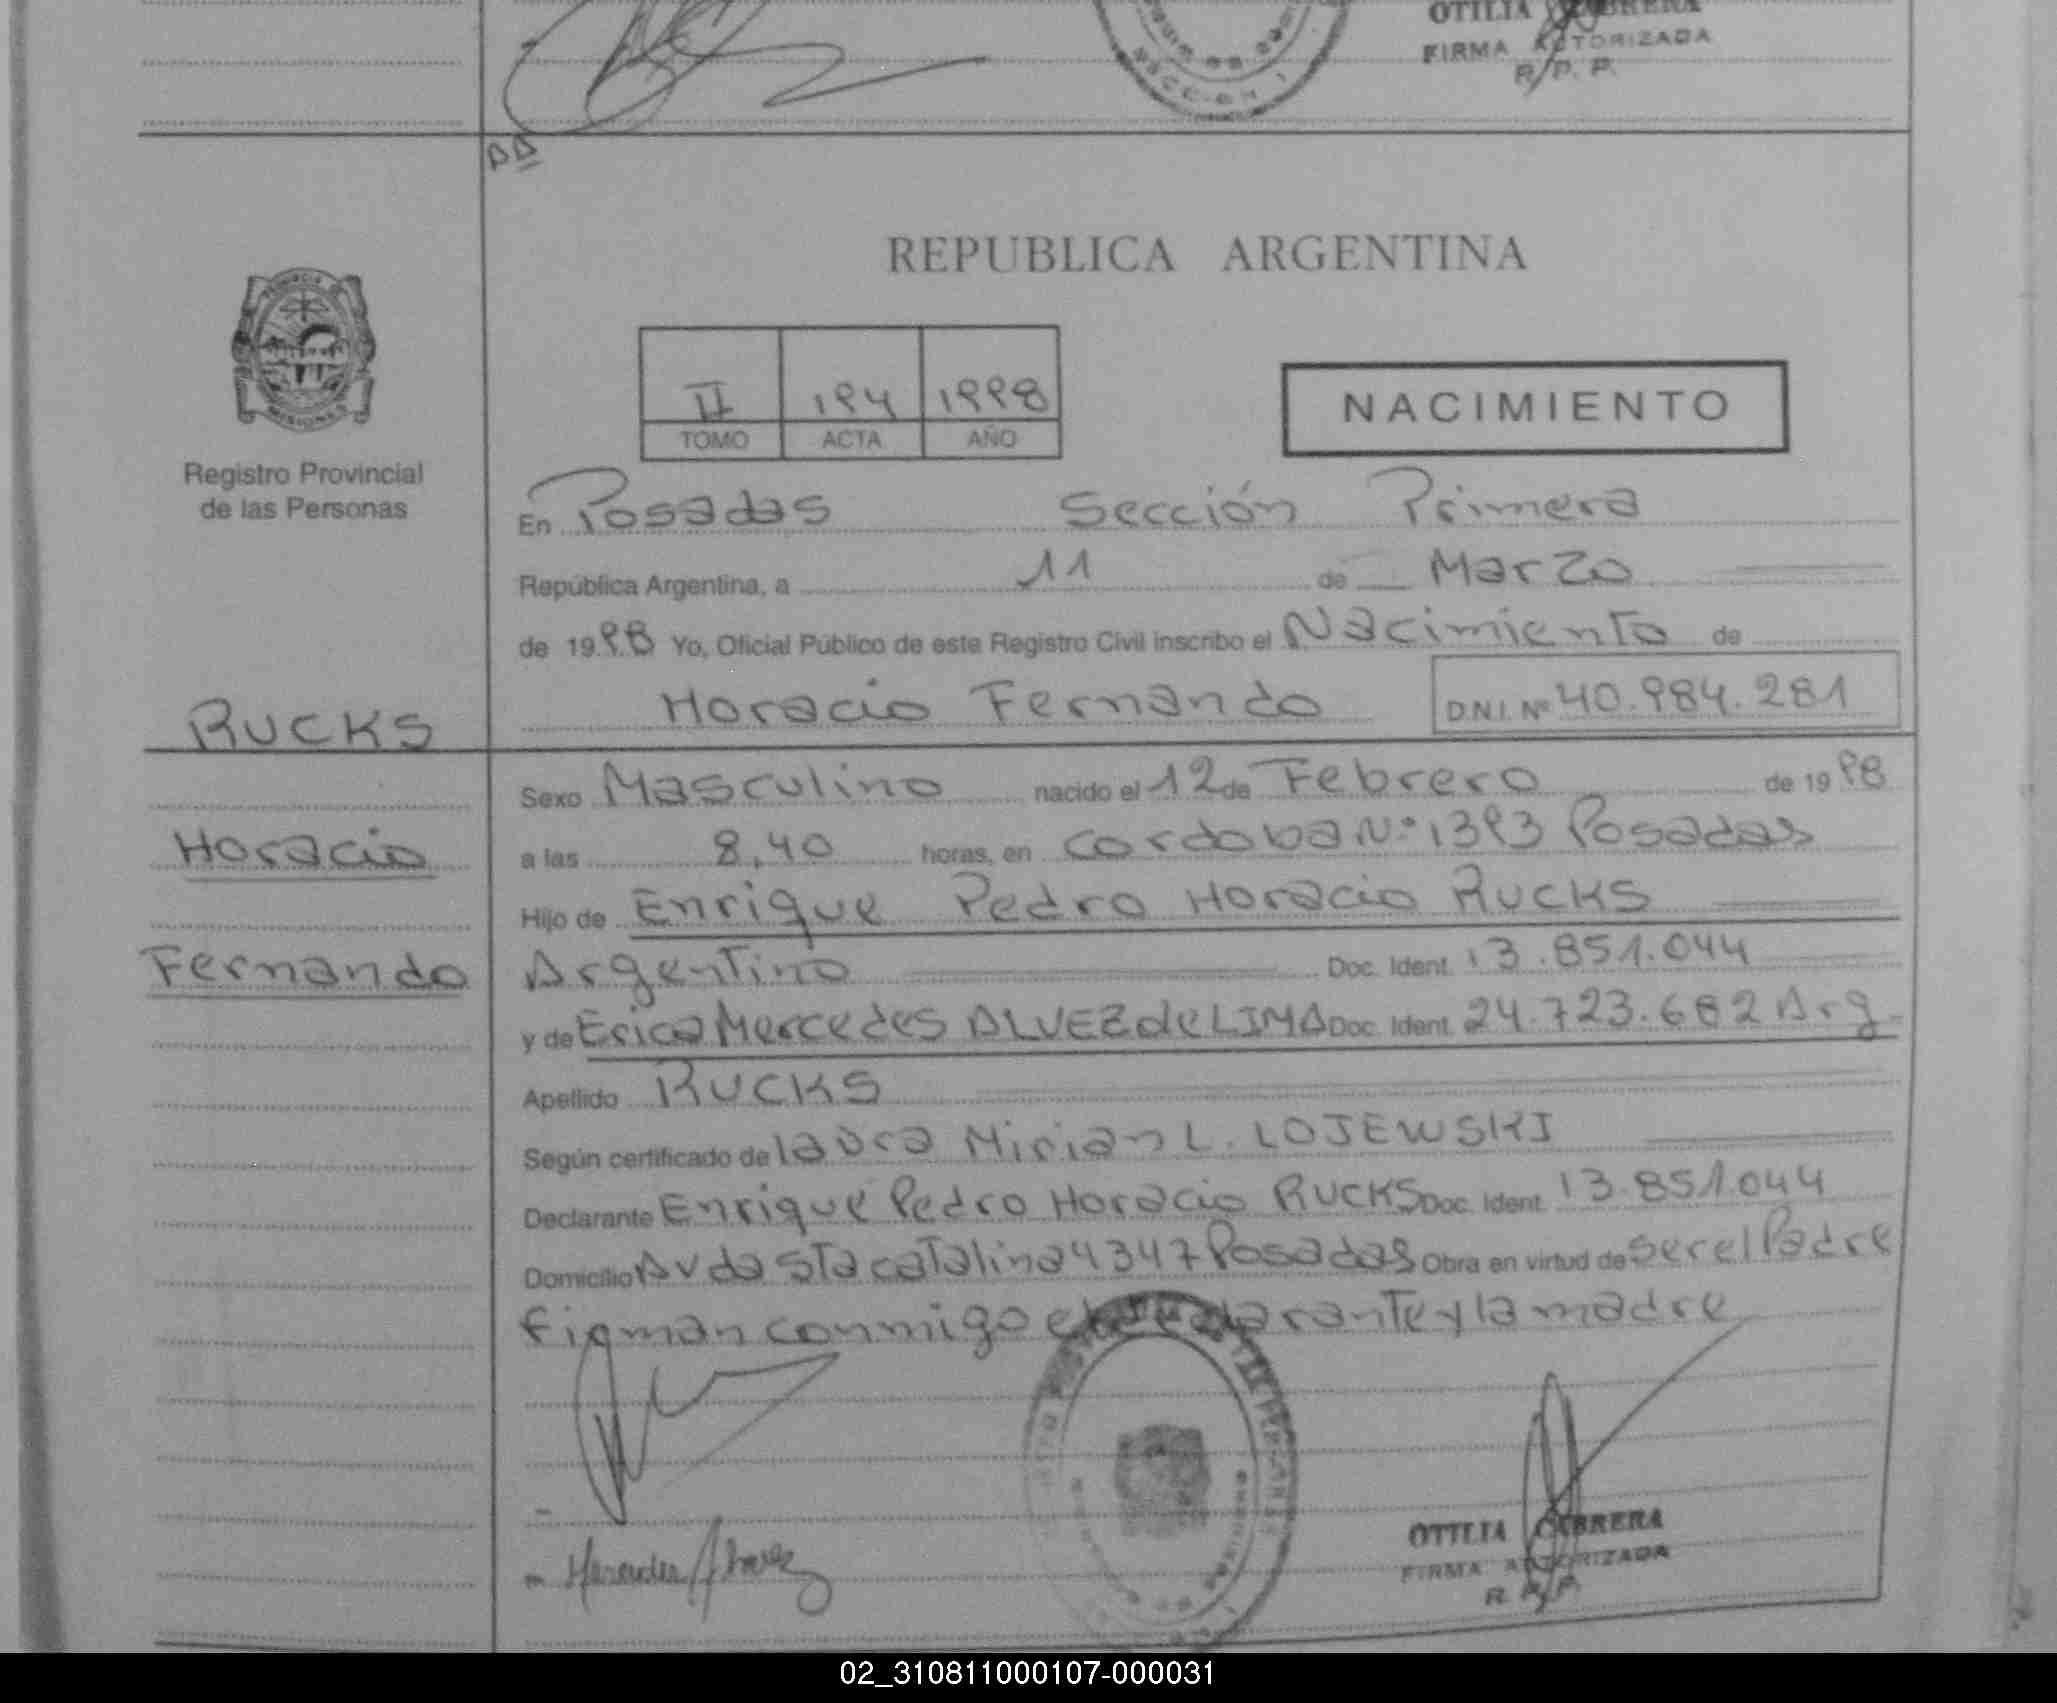 OTILIA CABRERA
FIRMA AUTORIZADA
R. P. P.
REPUBLICA ARGENTINA
II 194 1998
TOMO ACTA AÑO
NACIMIENTO
Registro Provincial
de las Personas
En Posadas Sección Primera
República Argentina, a 11 de Marzo
de 1998 Yo, Oficial Público de este Registro Civil inscribo el Nacimiento de
Horacio Fernando D.N.I. Nº 40.984.281
RUCKS
Horacio
Fernando
Sexo Masculino nacido el 12 de Febrero de 1998
a las 8,40 horas, en Cordoba Nº 1393 Posadas
Hijo de Enrique Pedro Horacio RUCKS
Argentino Doc. Ident. 13.851.044
y de Erica Mercedes ALVEZ de LIMA Doc. Ident. 24.723.682 Arg
Apellido RUCKS
Según certificado de la Dra Mirian L. LOJEWSKI
Declarante Enrique Pedro Horacio RUCKS Doc. Ident. 13.851.044
Domicilio Avda Sta Catalina 4347 Posadas Obra en virtud de ser el Padre
firman conmigo el declarante y la madre
OTILIA CABRERA
FIRMA AUTORIZADA
R. P. P.
02_310811000107-000031